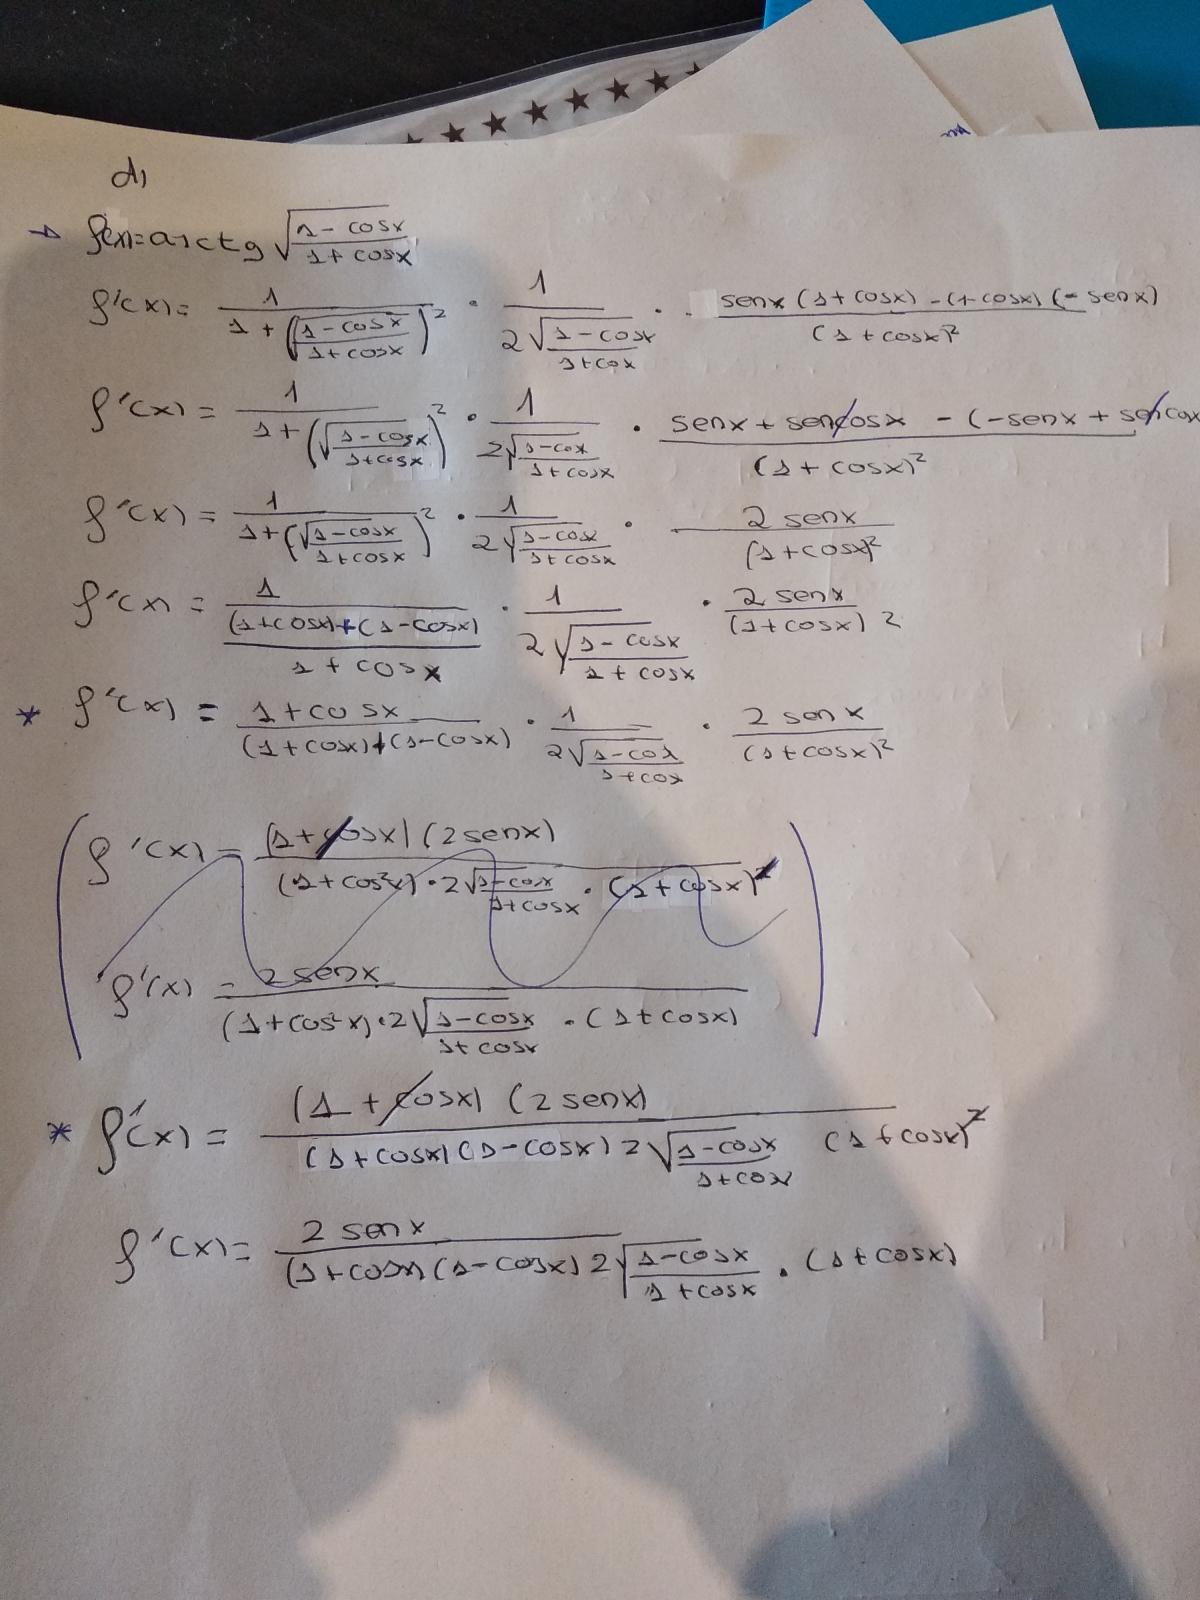 d)
→ f(x)=arctg √((1-cosx)/(1+cosx))
f'(x)= 1/(1+(√((1-cosx)/(1+cosx)))²) · 1/(2√((1-cosx)/(1+cox))) · (senx(1+cosx)-(1-cosx)(-senx))/(1+cosx)²
f'(x)= 1/(1+(√((1-cosx)/(1+cosx)))²) · 1/(2√((1-cox)/(1+cosx))) · (senx+sencosx-(-senx+sencox/(1+cosx)²
f'(x)= 1/(1+(√((1-cosx)/(1+cosx)))²) · 1/(2√((1-cosx)/(1+cosx))) · 2senx/(1+cosx)²
f'(x)= 1/(((1+cosx)+(1-cosx))/(1+cosx)) · 1/(2√((1-cosx)/(1+cosx))) · 2senx/(1+cosx)2
* f'(x)= (1+cosx)/((1+cosx)+(1-cosx)) · 1/(2√((1-cosx)/(1+cox))) · 2senx/(1+cosx)²
f'(x)= (1+cosx)(2senx)/((1+cos²x)·2√((1-cosx)/(1+cosx))·(1+cosx)²)
f'(x)= 2senx/((1+cos²x)·2√((1-cosx)/(1+cosx))·(1+cosx))
* f'(x)= (1+cosx)(2senx)/((1+cosx)(1-cosx)2√((1-cosx)/(1+cosx)) (1+cosx)²)
f'(x)= 2senx/((1+cosx)(1-cosx)2√((1-cosx)/(1+cosx))·(1+cosx))